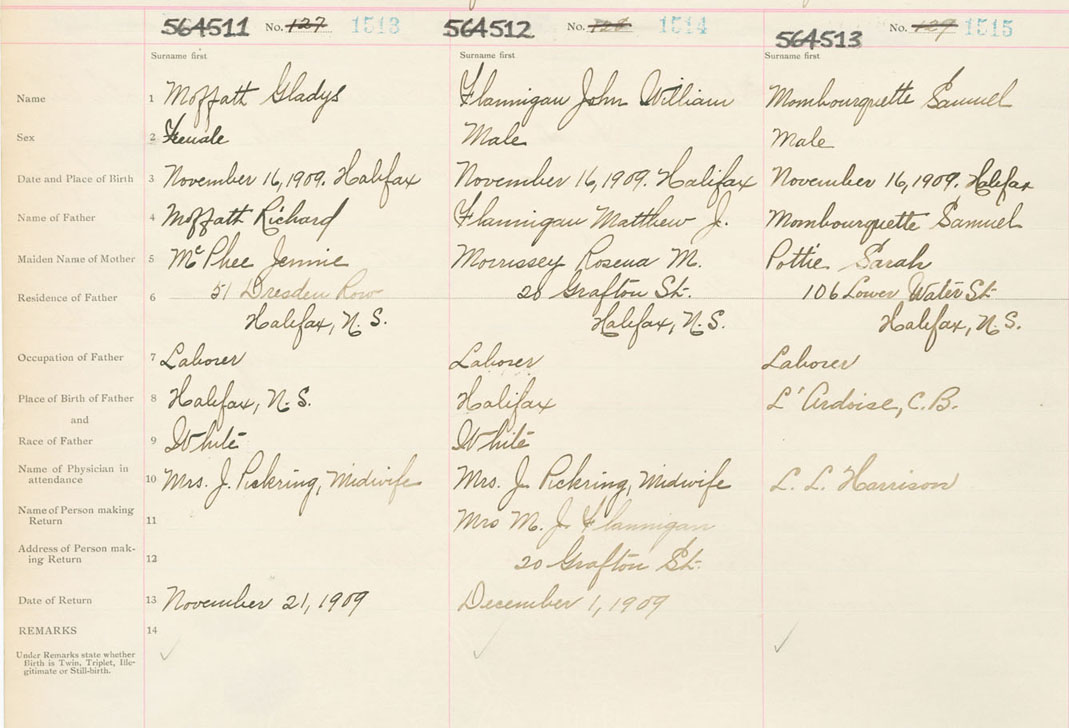 564511 No. 127 1513 564512 No. 128 1514 564513 No. 129 1515
Surname first Surname first Surname first
Name 1 Moffatt Gladys Flannigan John William Mombourquette Samuel
Sex 2 Female Male Male
Date and Place of Birth 3 November 16, 1909. Halifax November 16, 1909. Halifax November 16, 1909. Halifax
Name of Father 4 Moffatt Richard Flannigan Matthew J. Mombourquette Samuel
Maiden Name of Mother 5 McPhee Jennie Morrissey Rosena M. Pottie Sarah
Residence of Father 6 51 Dresden Row 20 Grafton St. 106 Lower Water St.
Halifax, N.S. Halifax, N.S. Halifax, N.S.
Occupation of Father 7 Laborer Laborer Laborer
Place of Birth of Father 8 Halifax, N.S. Halifax L'Ardoise, C.B.
and
Race of Father 9 White White
Name of Physician in
attendance 10 Mrs. J. Pickring, Midwife Mrs. J. Pickring, Midwife L. L. Harrison
Name of Person making
Return 11 Mrs M. J. Flannigan
Address of Person mak-
ing Return 12 20 Grafton St.
Date of Return 13 November 21, 1909 December 1, 1909
REMARKS 14
Under Remarks state whether
Birth is Twin, Triplet, Ille-
gitimate or Still-birth.